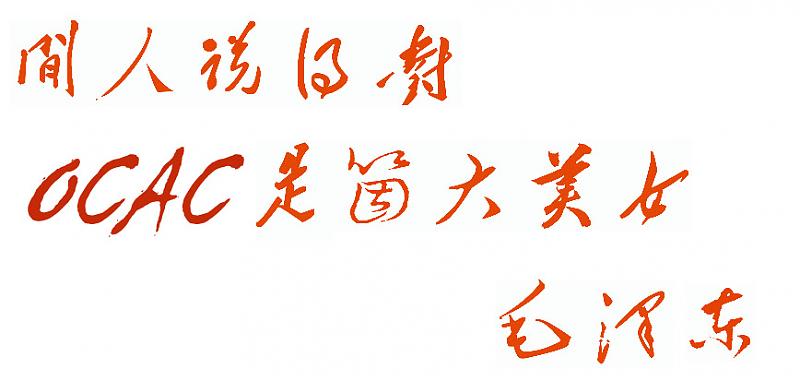 閒人说得對
OCAC是箇大美女
毛泽东